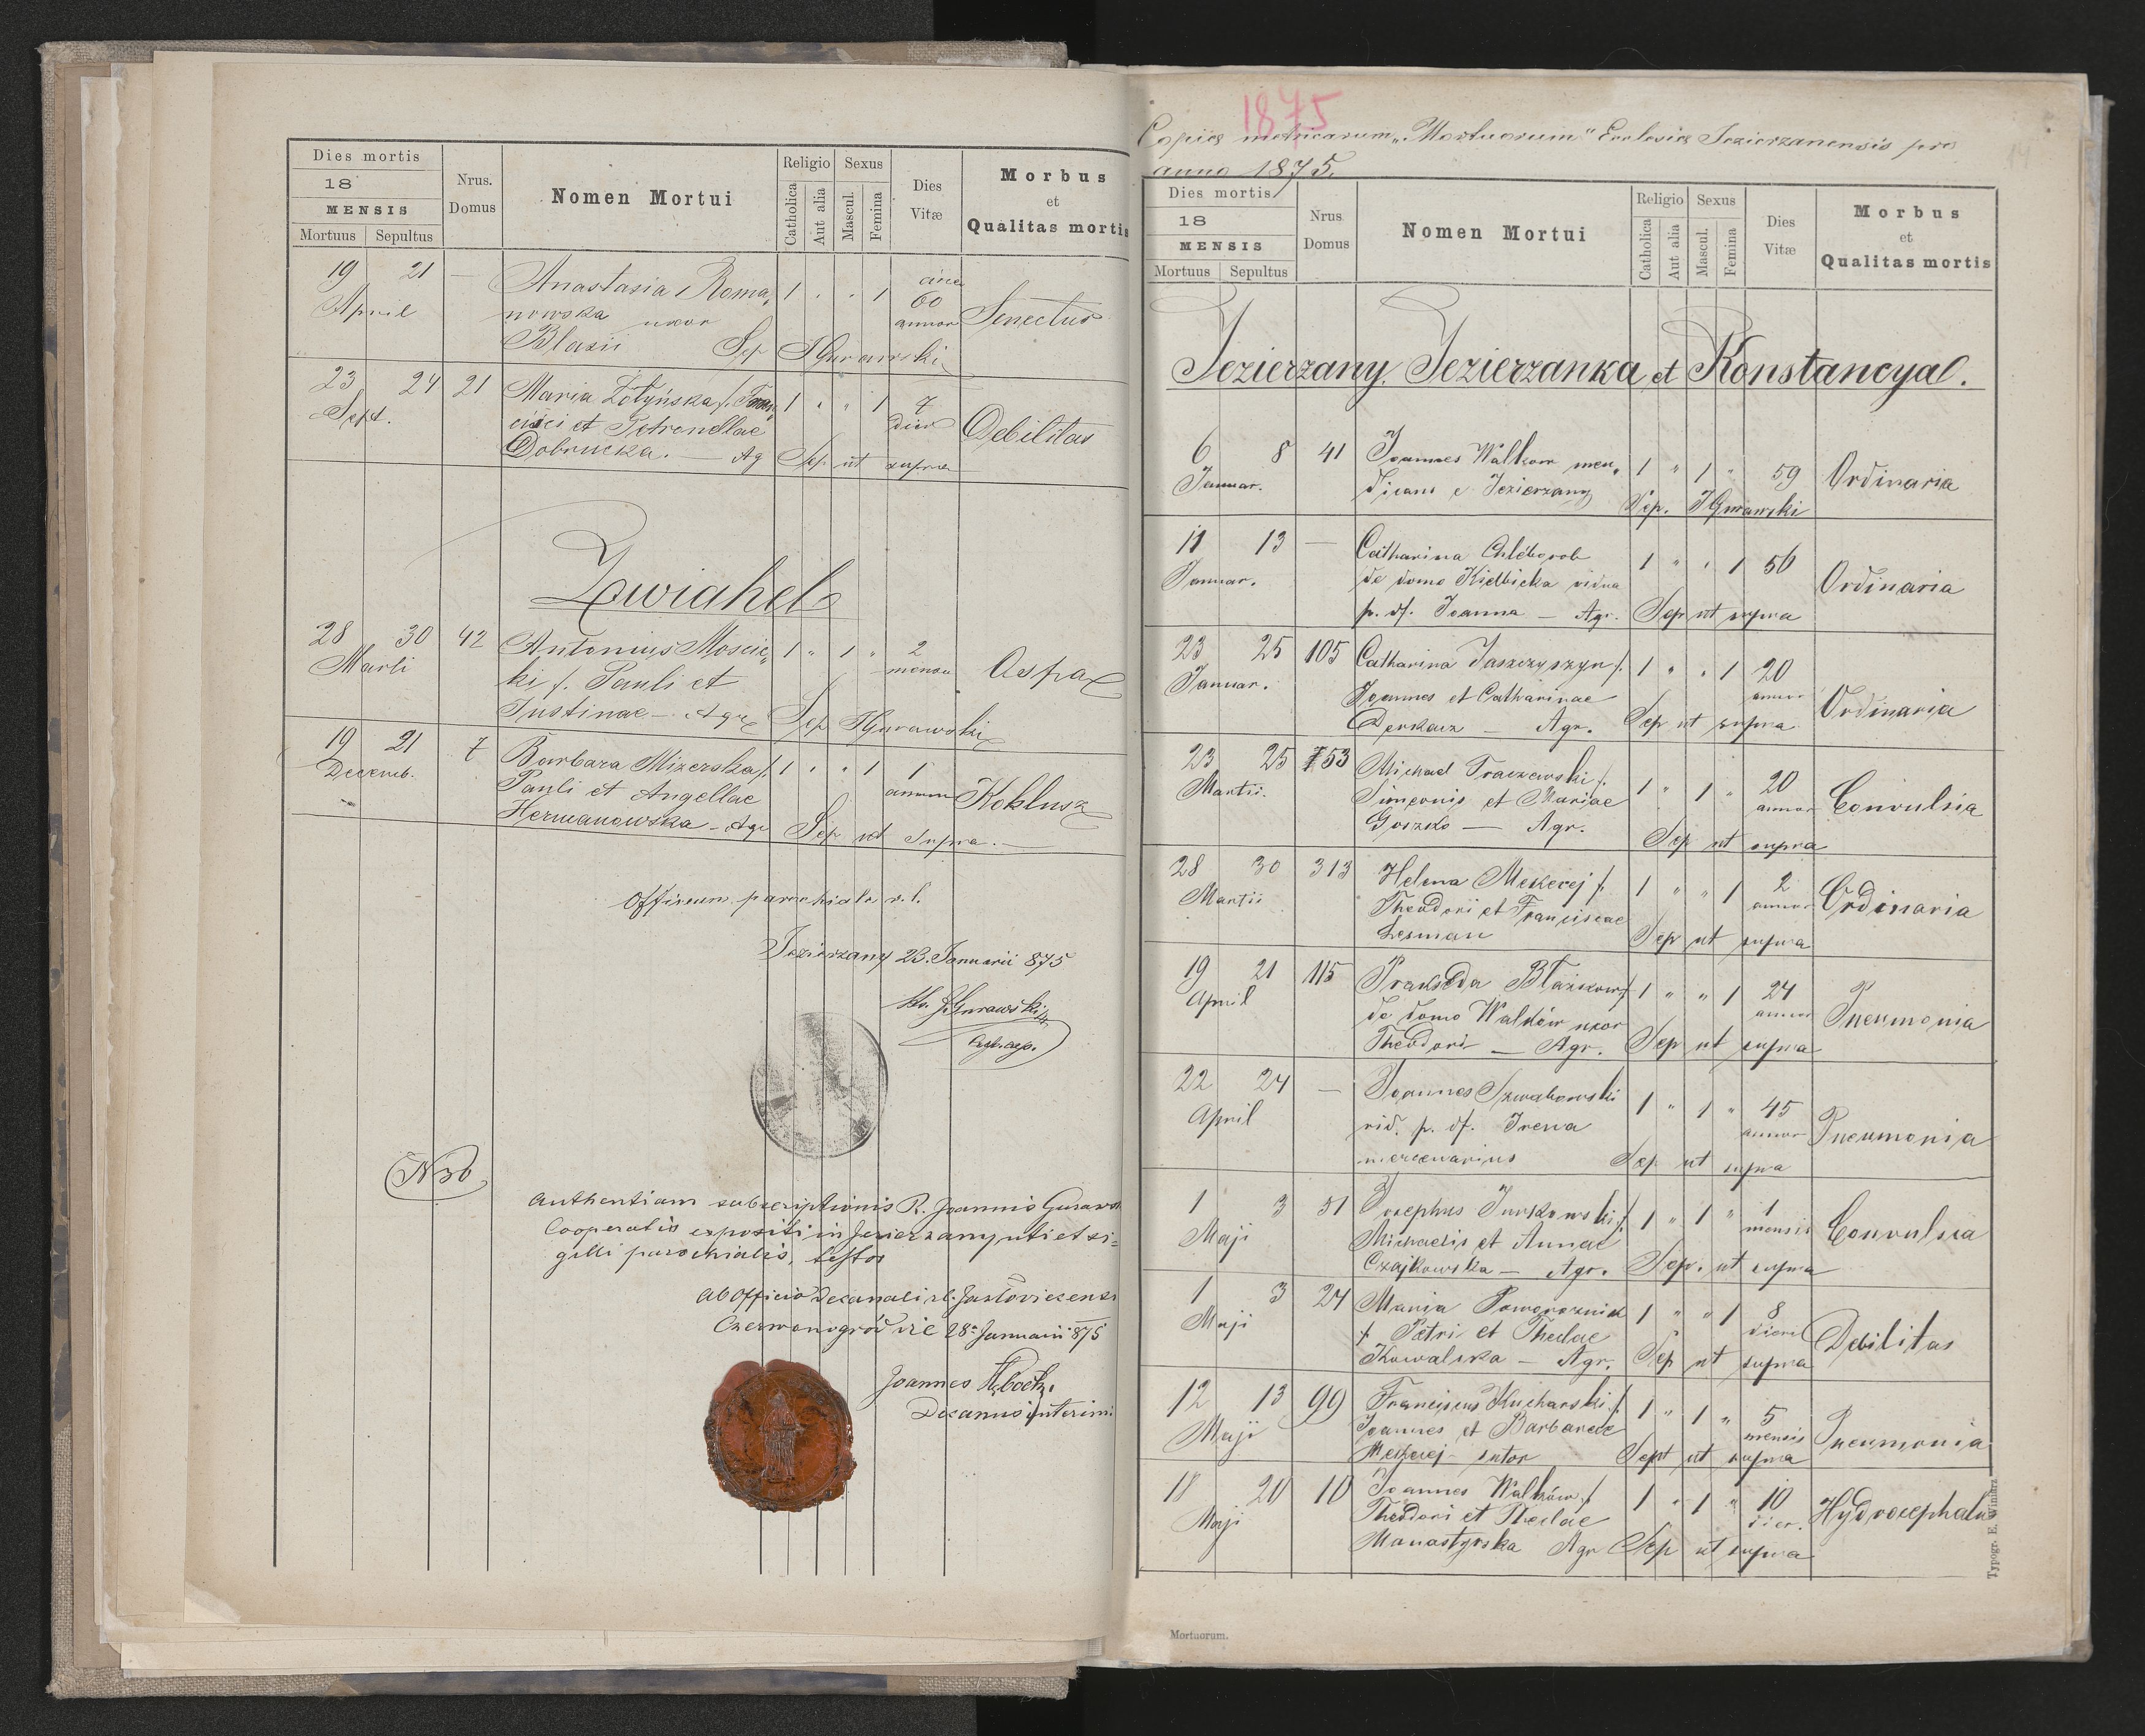 Dies mortis
18
MENSIS
Mortuus Sepultus
Nrus.
Domus
Nomen Mortui
Religio
Catholica
Aut alia
Sexus
Mascul.
Femina
Dies
Vitæ
Morbus
et
Qualitas mortis
19 21 — Anastasia Roma, 1 " " 1 circa
April nowska uxor 60 annor Senectus
Blasii Sep JGurawski
23 24 21 Maria Żołyńska f. Fran, 1 " " 1 7
Sept. cisci et Petronellae dier Debilitas
Dobrucka. — Ag Sep ut supra
Zwiahel
28 30 42 Antonius Moscic, 1 " 1 " 2
Marti ki f. Pauli et mensu
Justinae — Agr Sep JGurawski
19 21 7 Barbara Mizerska f. 1 " " 1 1
Decemb. Pauli et Angellae annum Koklusz
Hermanowska - Agr Sep ut supra. —
Officium parochiale r. l.
Jezierzany 23. Januarii 875
JGurawski
N 30
Authentiam subscriptionis R. Joannis Gurawsk
Cooperatis expositi in Jezierzany uti et si=
gilli parochialis, testor
Ab Officio Decanali r.l. Jazłoviecensi
Czerwonogród die 28a Januarii 875
Joannes
Decanus interim.
1875
Copia metricarum „Mortuorum" Ecclesiæ Jezierzanensis pro
anno 1875.
14
Dies mortis
18
MENSIS
Mortuus Sepultus
Nrus
Domus
Nomen Mortui
Religio
Catholica
Aut alia
Sexus
Mascul.
Femina
Dies
Vitæ
Morbus
et
Qualitas mortis
Jezierzany, Jezierzanka et Konstancya.
6 8 41 Joannes Walkow men, 1 " 1 " 59 Ordinaria
Januar. dicans e Jezierzany Sep. JGurawski
11 13 — Catharina Chleborob 1 " " 1 56
Januar. de domo Kiełbicka vidua Ordinaria
p. df. Joanna — Agr. Sep ut supra
23 25 105 Catharina Jaszczyszyn f. 1 " " 1 20
Januar. Joannes et Catharinae annor Ordinaria
Derkacz — Agr. Sep ut supra
23 25 153 Michael Traczewski f. 1 " 1 " 20
Martii. Simeonis et Mariae annor Convulsia
Goszko — Agr. Sep ut supra
28 30 313 Helena Mekerej f. 1 " " 1 2
Martii Theodori et Franciscae annor Ordinaria
Lesman Sep ut supra
19 21 115 Prakseda Błażkow f 1 " " 1 24
April de domo Walków uxor annor Pneumonia
Theodori — Agr. Sep ut supra
22 24 — Joannes Szwabowski 1 " 1 " 45
April vid. p. df. Irena annor Pneumonia
mercenarius Sep ut supra
1 3 31 Josephus Jurkowski f. 1 " 1 " 1
Maji Michaelis et Annae mensis Convulsia
Czajkowska — Agr. Sep. ut supra
1 3 24 Maria Poworoznick 1 " " 1 8
Maji f. Petri et Theclae dierum Debilitas
Kowalska — Agr. Sep ut supra
12 13 99 Franciscus Kucharski f. 1 " 1 " 5
Maji Joannes et Barbarae mensis Pneumonia
Mekerej - sutor Sept ut supra
18 20 10 Joannes Walków f 1 " 1 " 10
Maji Theodori et Theclae dier. Hydrocephalus
Manastyrska Agr Sep ut supra
Typogr. E. Winiarz
Mortuorum.